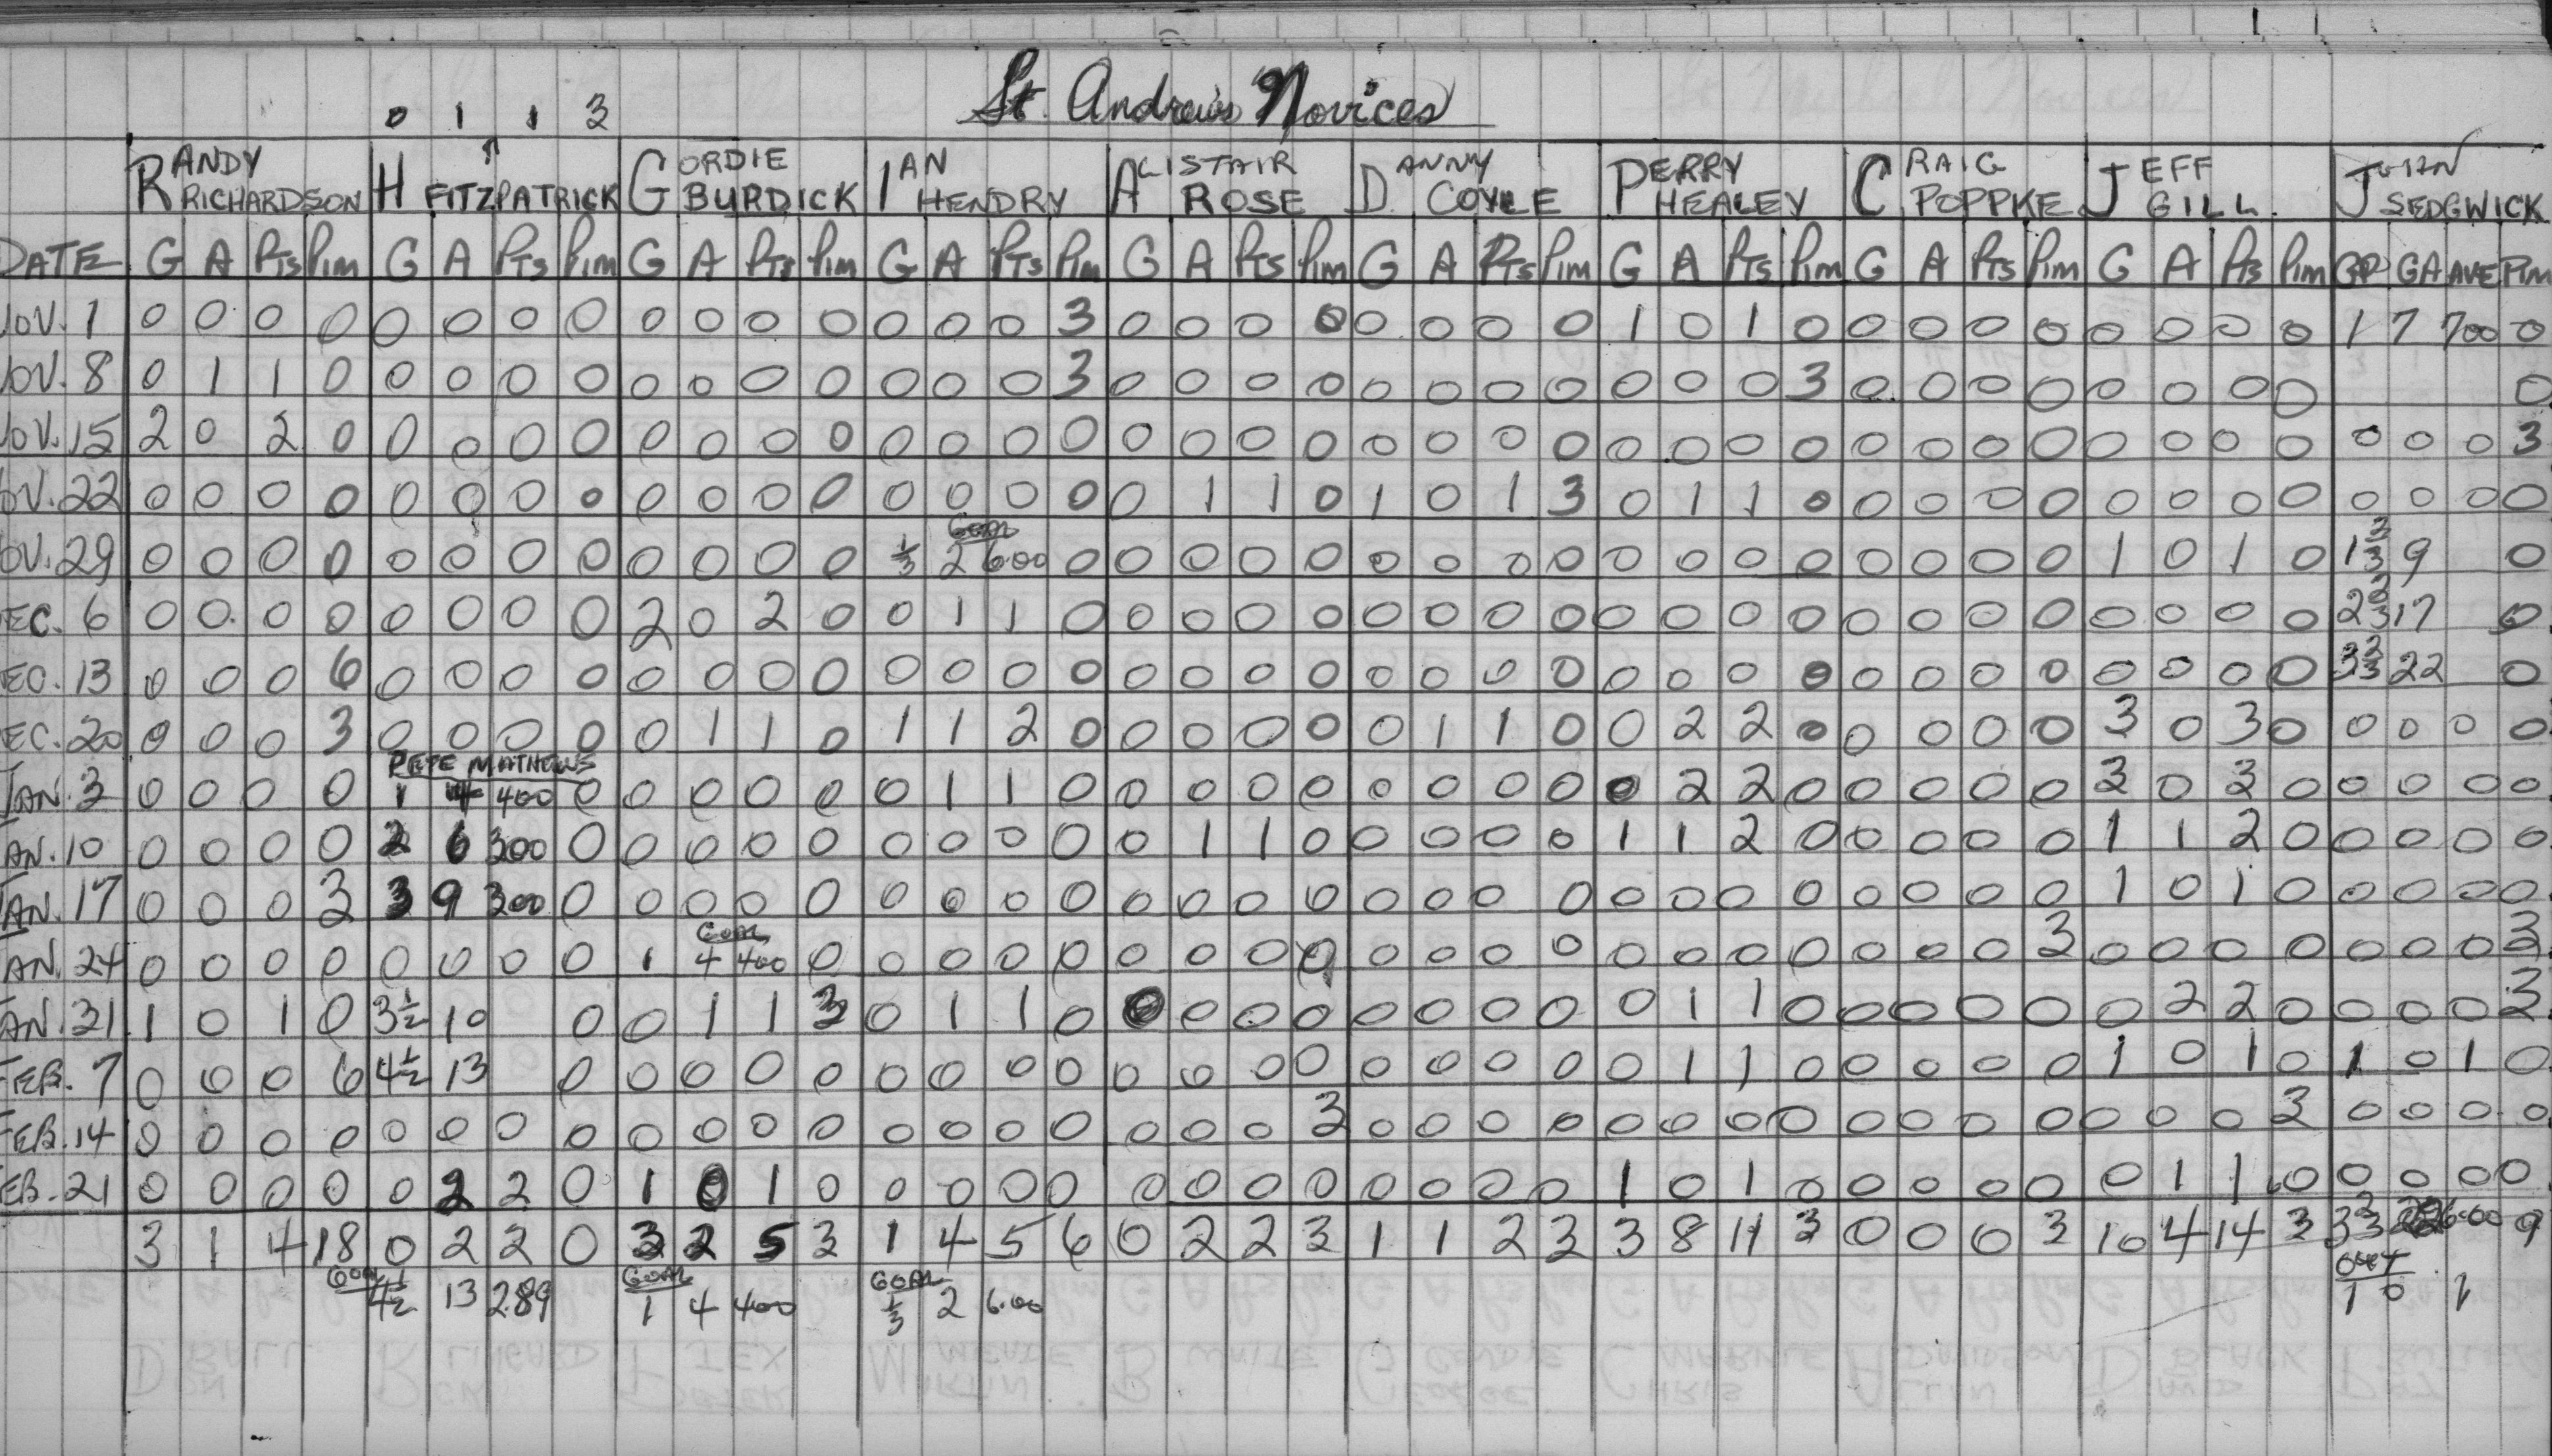 St. Andrew's Novices
0 1 1 3
RANDY RICHARDSON H FITZPATRICK GORDIE BURDICK IAN HENDRY ALISTAIR ROSE DANNY COYLE PERRY HEALEY CRAIG POPPKE JEFF GILL JOHN SEDGWICK
DATE G A Pts Pim G A Pts Pim G A Pts Pim G A Pts Pim G A Pts Pim G A Pts Pim G A Pts Pim G A Pts Pim G A Pts Pim GP GA AVE PIM
NOV. 1 0 0 0 0 0 0 0 0 0 0 0 0 0 0 0 3 0 0 0 0 0 0 0 0 1 0 1 0 0 0 0 0 0 0 0 0 1 7 700 0
NOV. 8 0 1 1 0 0 0 0 0 0 0 0 0 0 0 0 3 0 0 0 0 0 0 0 0 0 0 0 3 0 0 0 0 0 0 0 0 0
NOV. 15 2 0 2 0 0 0 0 0 0 0 0 0 0 0 0 0 0 0 0 0 0 0 0 0 0 0 0 0 0 0 0 0 0 0 0 0 0 0 0 3
NOV. 22 0 0 0 0 0 0 0 0 0 0 0 0 0 0 0 0 0 1 1 0 1 0 1 3 0 1 1 0 0 0 0 0 0 0 0 0 0 0 0 0
GOAL
NOV. 29 0 0 0 0 0 0 0 0 0 0 0 0 1/3 2 6.00 0 0 0 0 0 0 0 0 0 0 0 0 0 0 0 0 0 1 0 1 0 1 2/3 9 0
DEC. 6 0 0 0 0 0 0 0 0 2 0 2 0 0 1 1 0 0 0 0 0 0 0 0 0 0 0 0 0 0 0 0 0 0 0 0 0 2 2/3 17 0
DEC. 13 0 0 0 6 0 0 0 0 0 0 0 0 0 0 0 0 0 0 0 0 0 0 0 0 0 0 0 0 0 0 0 0 0 0 0 0 3 2/3 22 0
DEC. 20 0 0 0 3 0 0 0 0 0 1 1 0 1 1 2 0 0 0 0 0 0 1 1 0 0 2 2 0 0 0 0 0 3 0 3 0 0 0 0 0
PETE MATHEWS
JAN. 3 0 0 0 0 1 4 400 0 0 0 0 0 0 1 1 0 0 0 0 0 0 0 0 0 0 2 2 0 0 0 0 0 3 0 3 0 0 0 0 0
JAN. 10 0 0 0 0 2 6 300 0 0 0 0 0 0 0 0 0 0 1 1 0 0 0 0 0 1 1 2 0 0 0 0 0 1 1 2 0 0 0 0 0
JAN. 17 0 0 0 3 3 9 300 0 0 0 0 0 0 0 0 0 0 0 0 0 0 0 0 0 0 0 0 0 0 0 0 0 1 0 1 0 0 0 0 0
GOAL
JAN. 24 0 0 0 0 0 0 0 0 1 4 400 0 0 0 0 0 0 0 0 0 0 0 0 0 0 0 0 0 0 0 0 3 0 0 0 0 0 0 0 3
JAN. 31 1 0 1 0 3 1/2 10 0 0 1 1 3 0 1 1 0 0 0 0 0 0 0 0 0 0 1 1 0 0 0 0 0 0 2 2 0 0 0 0 3
FEB. 7 0 0 0 6 4 1/2 13 0 0 0 0 0 0 0 0 0 0 0 0 0 0 0 0 0 0 1 1 0 0 0 0 0 1 0 1 0 1 0 1 0
FEB. 14 0 0 0 0 0 0 0 0 0 0 0 0 0 0 0 0 0 0 0 3 0 0 0 0 0 0 0 0 0 0 0 0 0 0 0 3 0 0 0 0
FEB. 21 0 0 0 0 0 2 2 0 1 0 1 0 0 0 0 0 0 0 0 0 0 0 0 0 1 0 1 0 0 0 0 0 0 1 1 0 0 0 0 0
3 1 4 18 0 2 2 0 3 2 5 3 1 4 5 6 0 2 2 3 1 1 2 3 3 8 11 3 0 0 0 3 10 4 14 3 3 2/3 22 6.00 9
GOAL 4 1/2 13 2.89 GOAL 1 4 400 GOAL 1/3 2 6.00 OUT 1 0 1